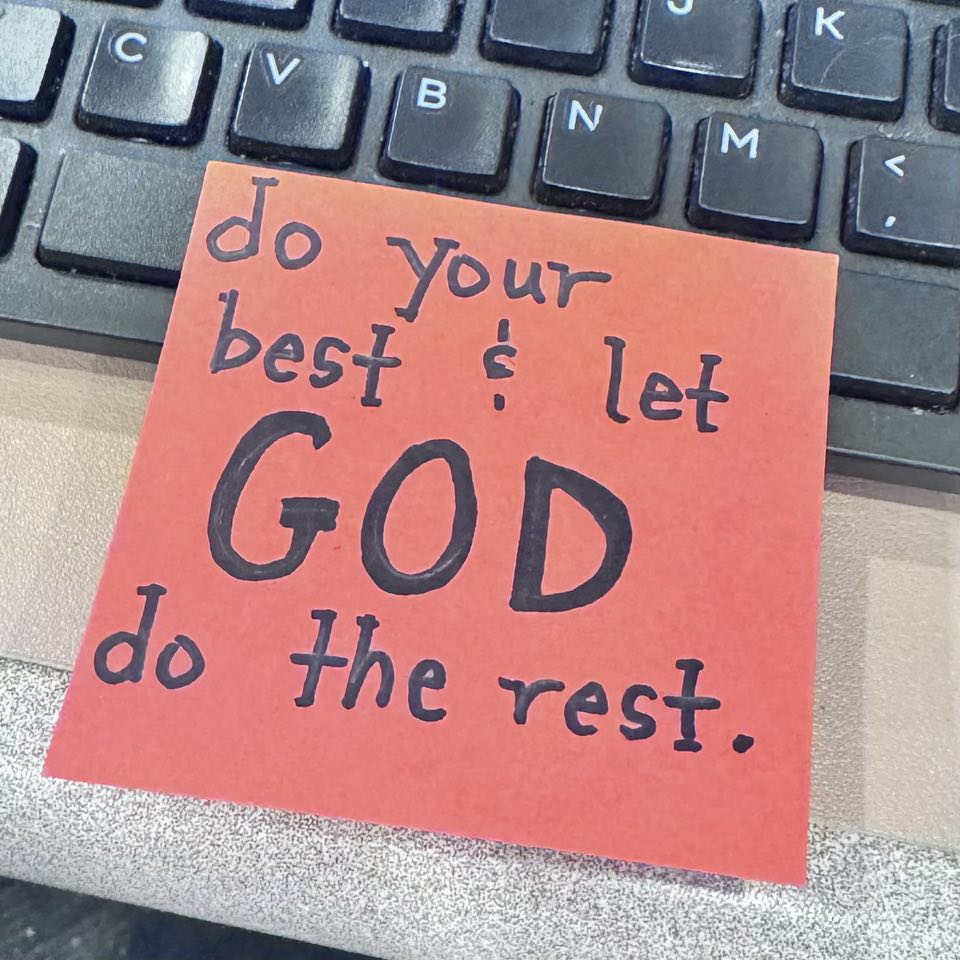 J K
C V B N M <
,
do your
best & let
GOD
do the rest.